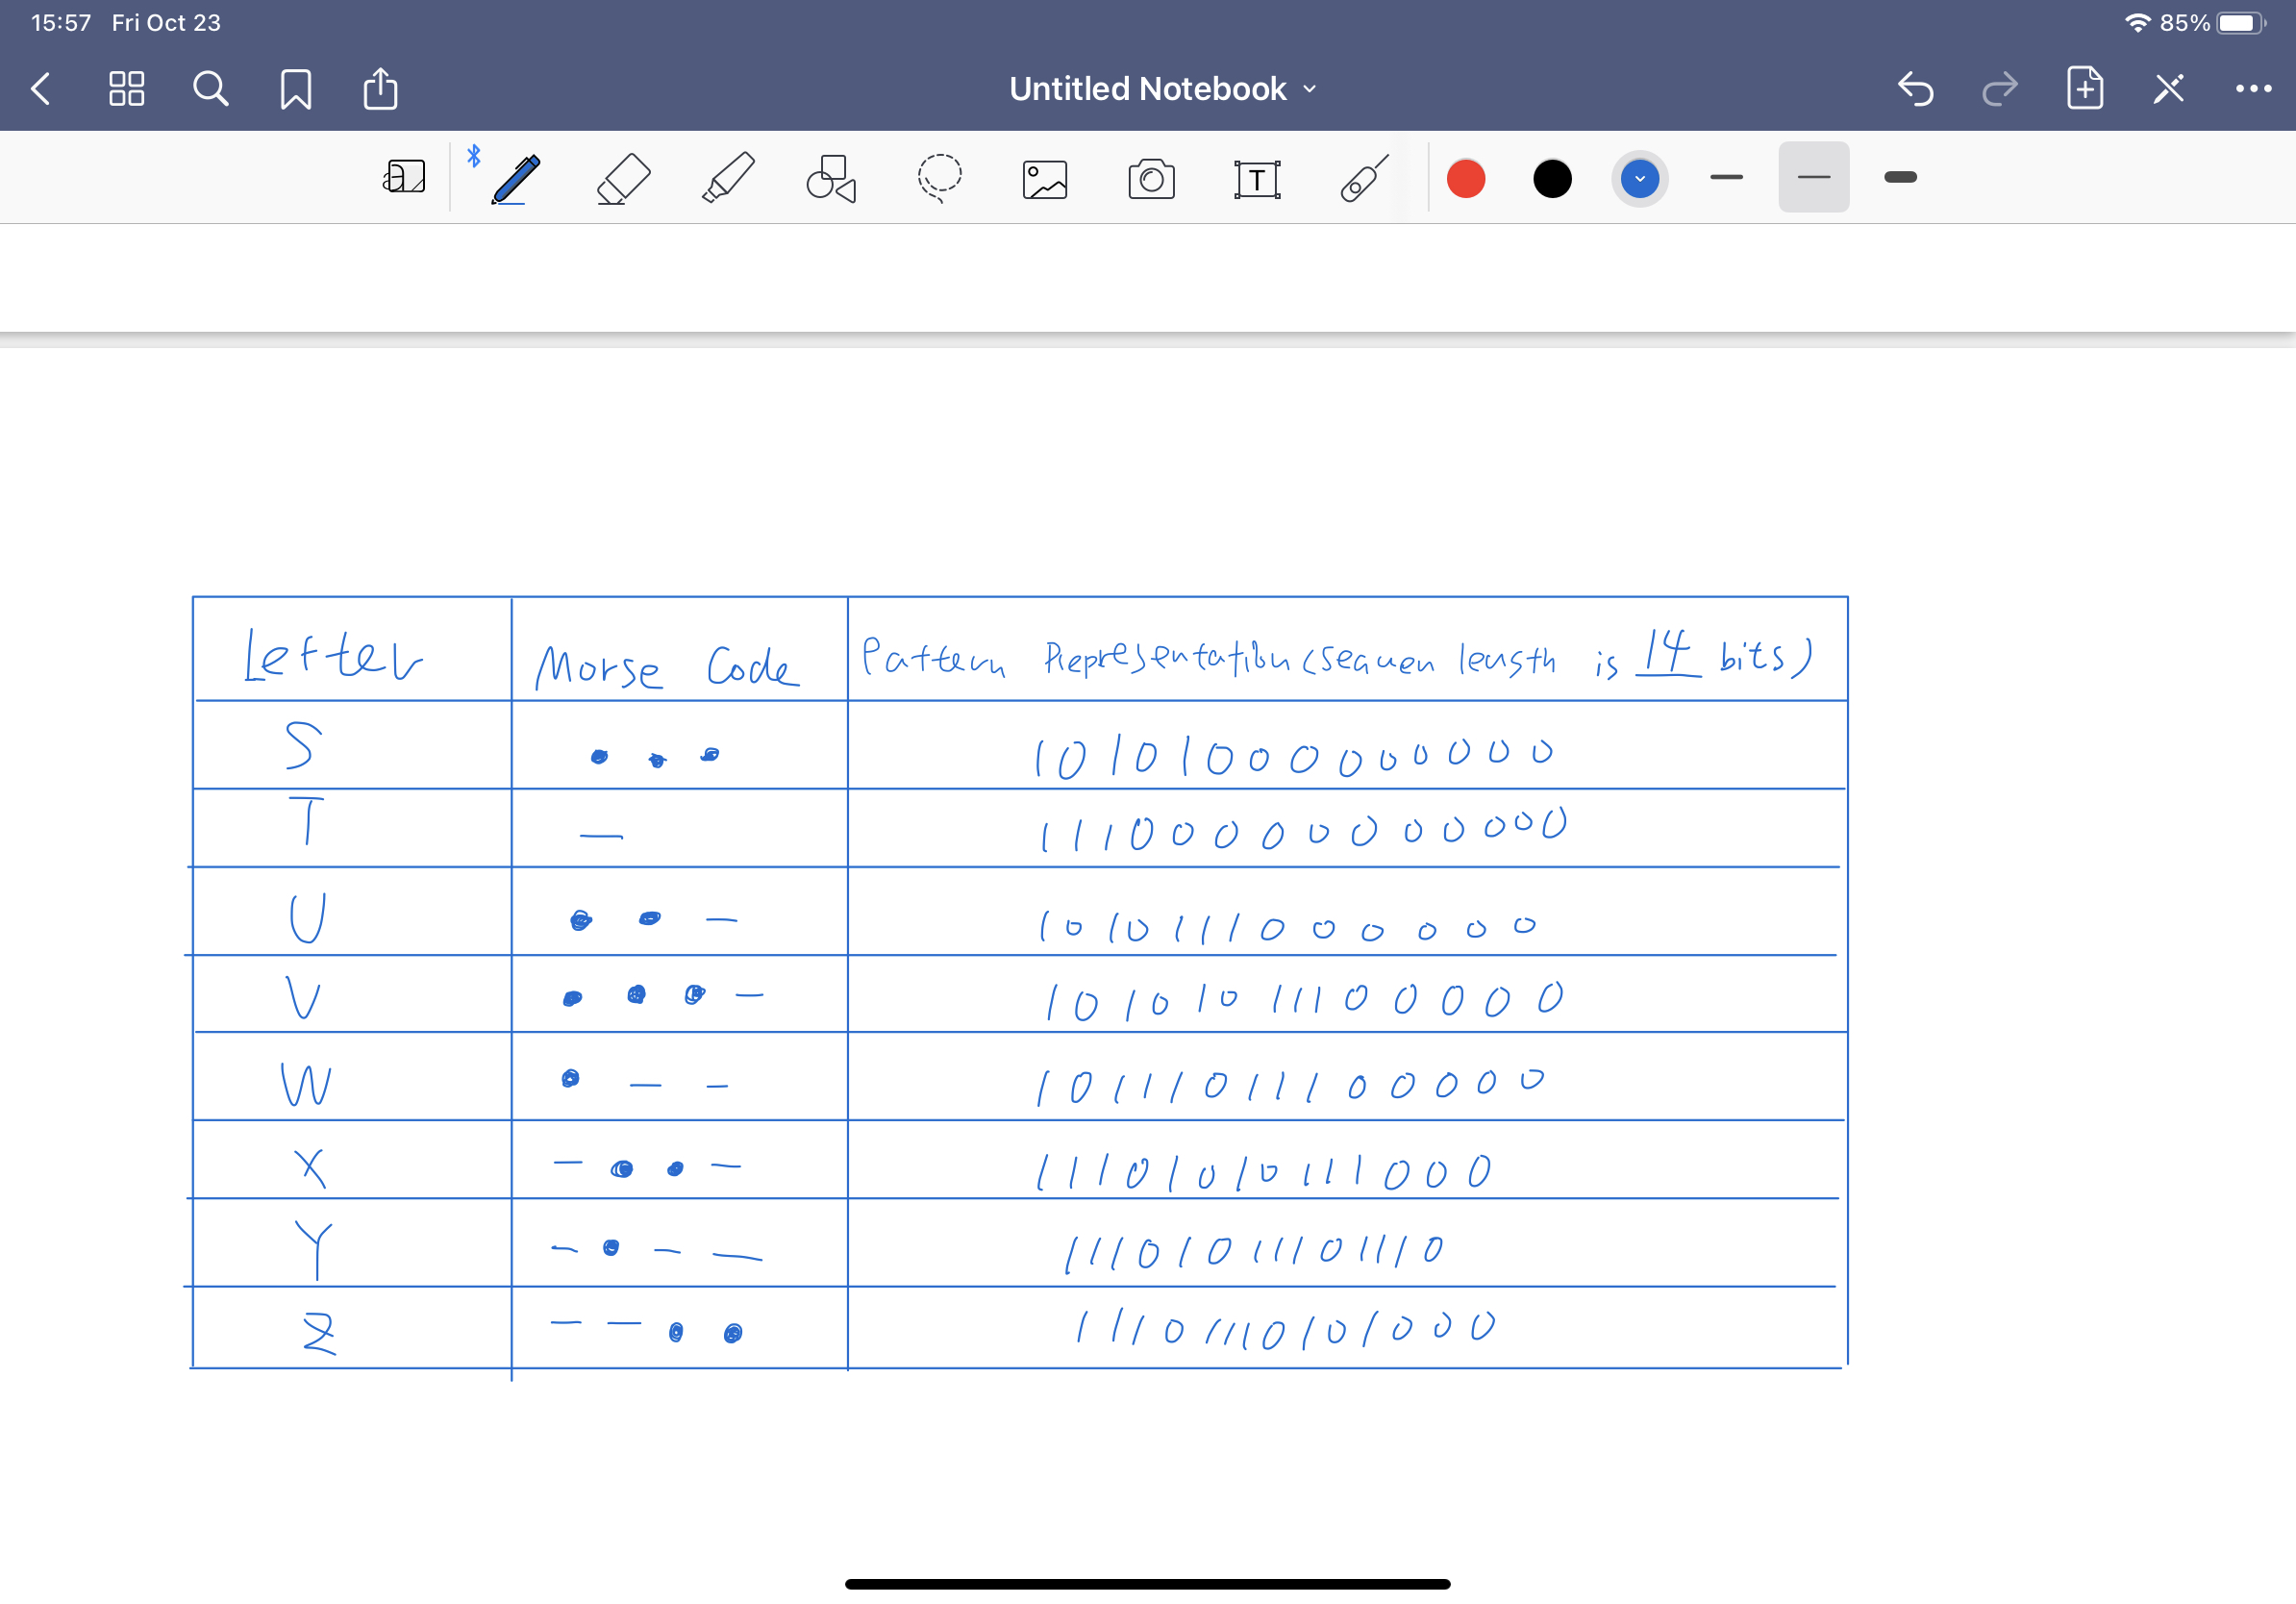 15:57 Fri Oct 23 85%
Untitled Notebook
Letter Morse Code Pattern Representation (sequen length is 14 bits)
S • • • 10101000000000
T — 11100000000000
U • • — 10101110000000
V • • • — 10101011100000
W • — — 10111011100000
X — • • — 11101010111000
Y — • — — 11101011101110
Z — — • • 11101110101000